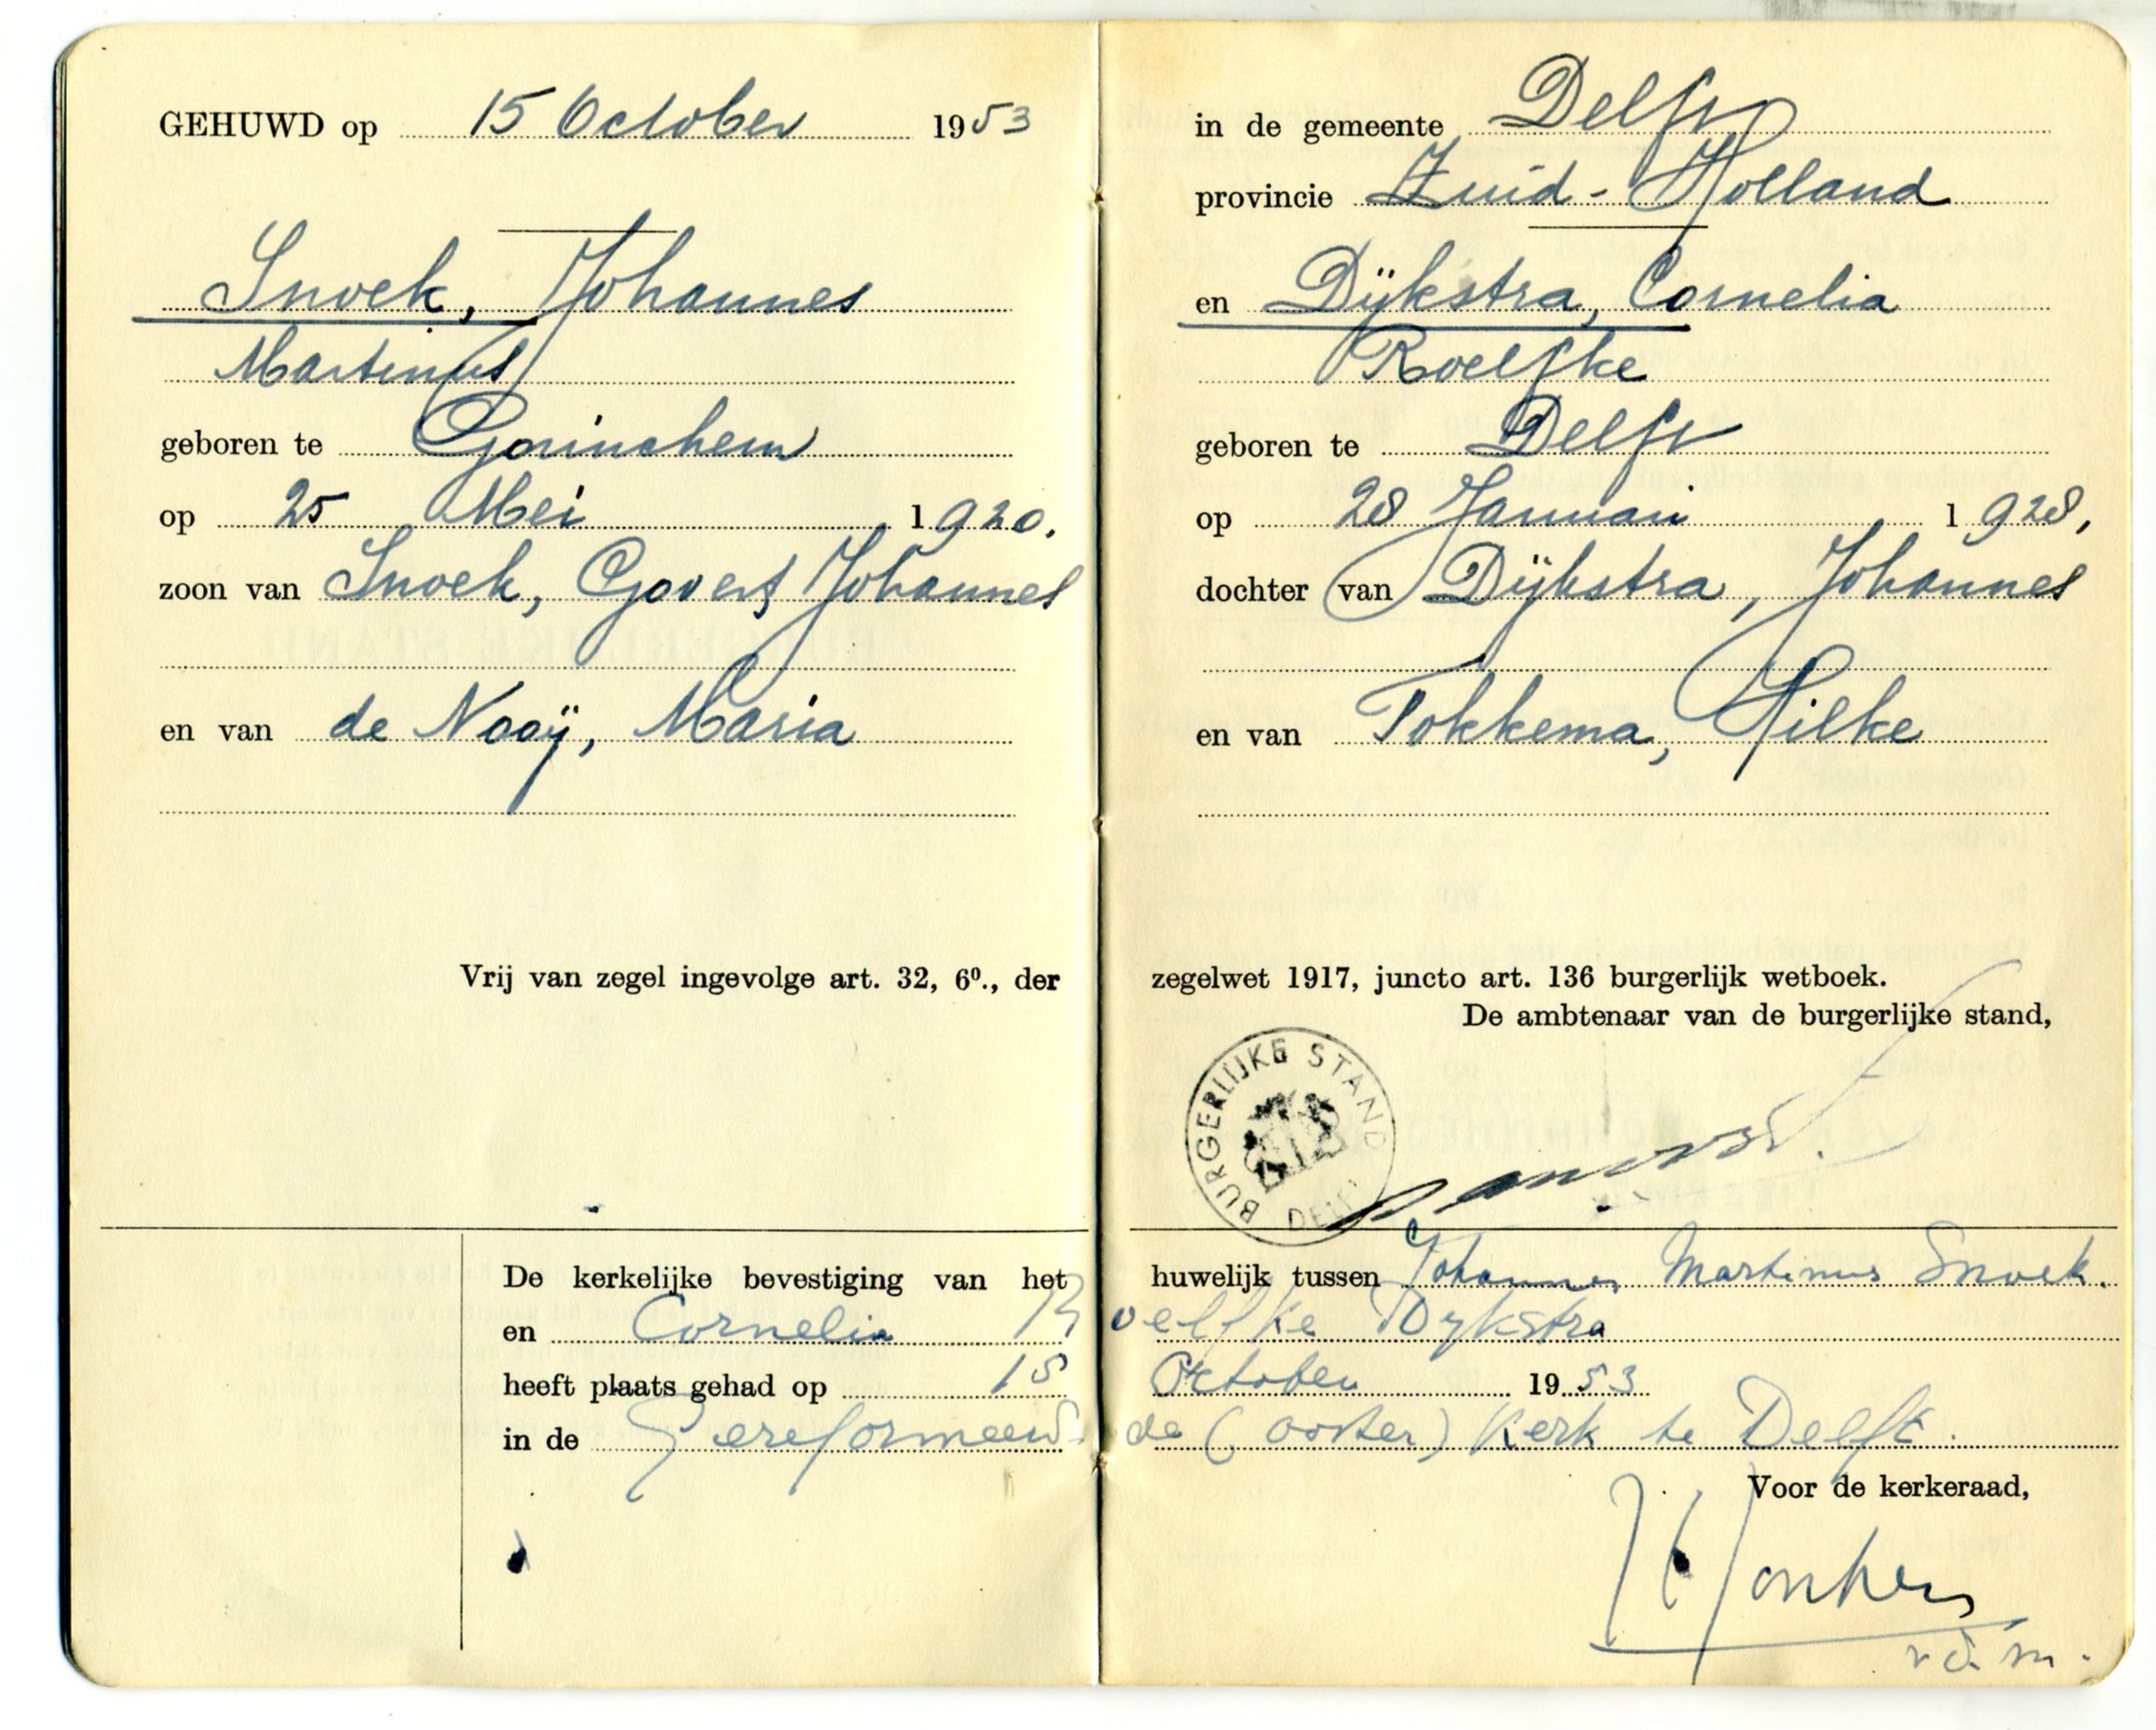 GEHUWD op 15 October 1953
Snoek, Johannes
Martinus
geboren te Gorinchem
op 25 Mei 1920.
zoon van Snoek, Govert Johannes
en van de Nooij, Maria
Vrij van zegel ingevolge art. 32, 6º., der
De kerkelijke bevestiging van het
en Cornelia R
heeft plaats gehad op 15
in de Gereformeerd-
in de gemeente Delft
provincie Zuid-Holland
en Dijkstra, Cornelia
Roelfke
geboren te Delft
op 28 Januari 1928,
dochter van Dijkstra, Johannes
en van Tokkema, Hilke
zegelwet 1917, juncto art. 136 burgerlijk wetboek.
De ambtenaar van de burgerlijke stand,
BURGERLIJKE STAND
DELFT
huwelijk tussen Johannes Martinus Snoek.
oelfke Dykstra
October 1953
de (ooster) Kerk te Delft.
Voor de kerkeraad,
v.d.m.